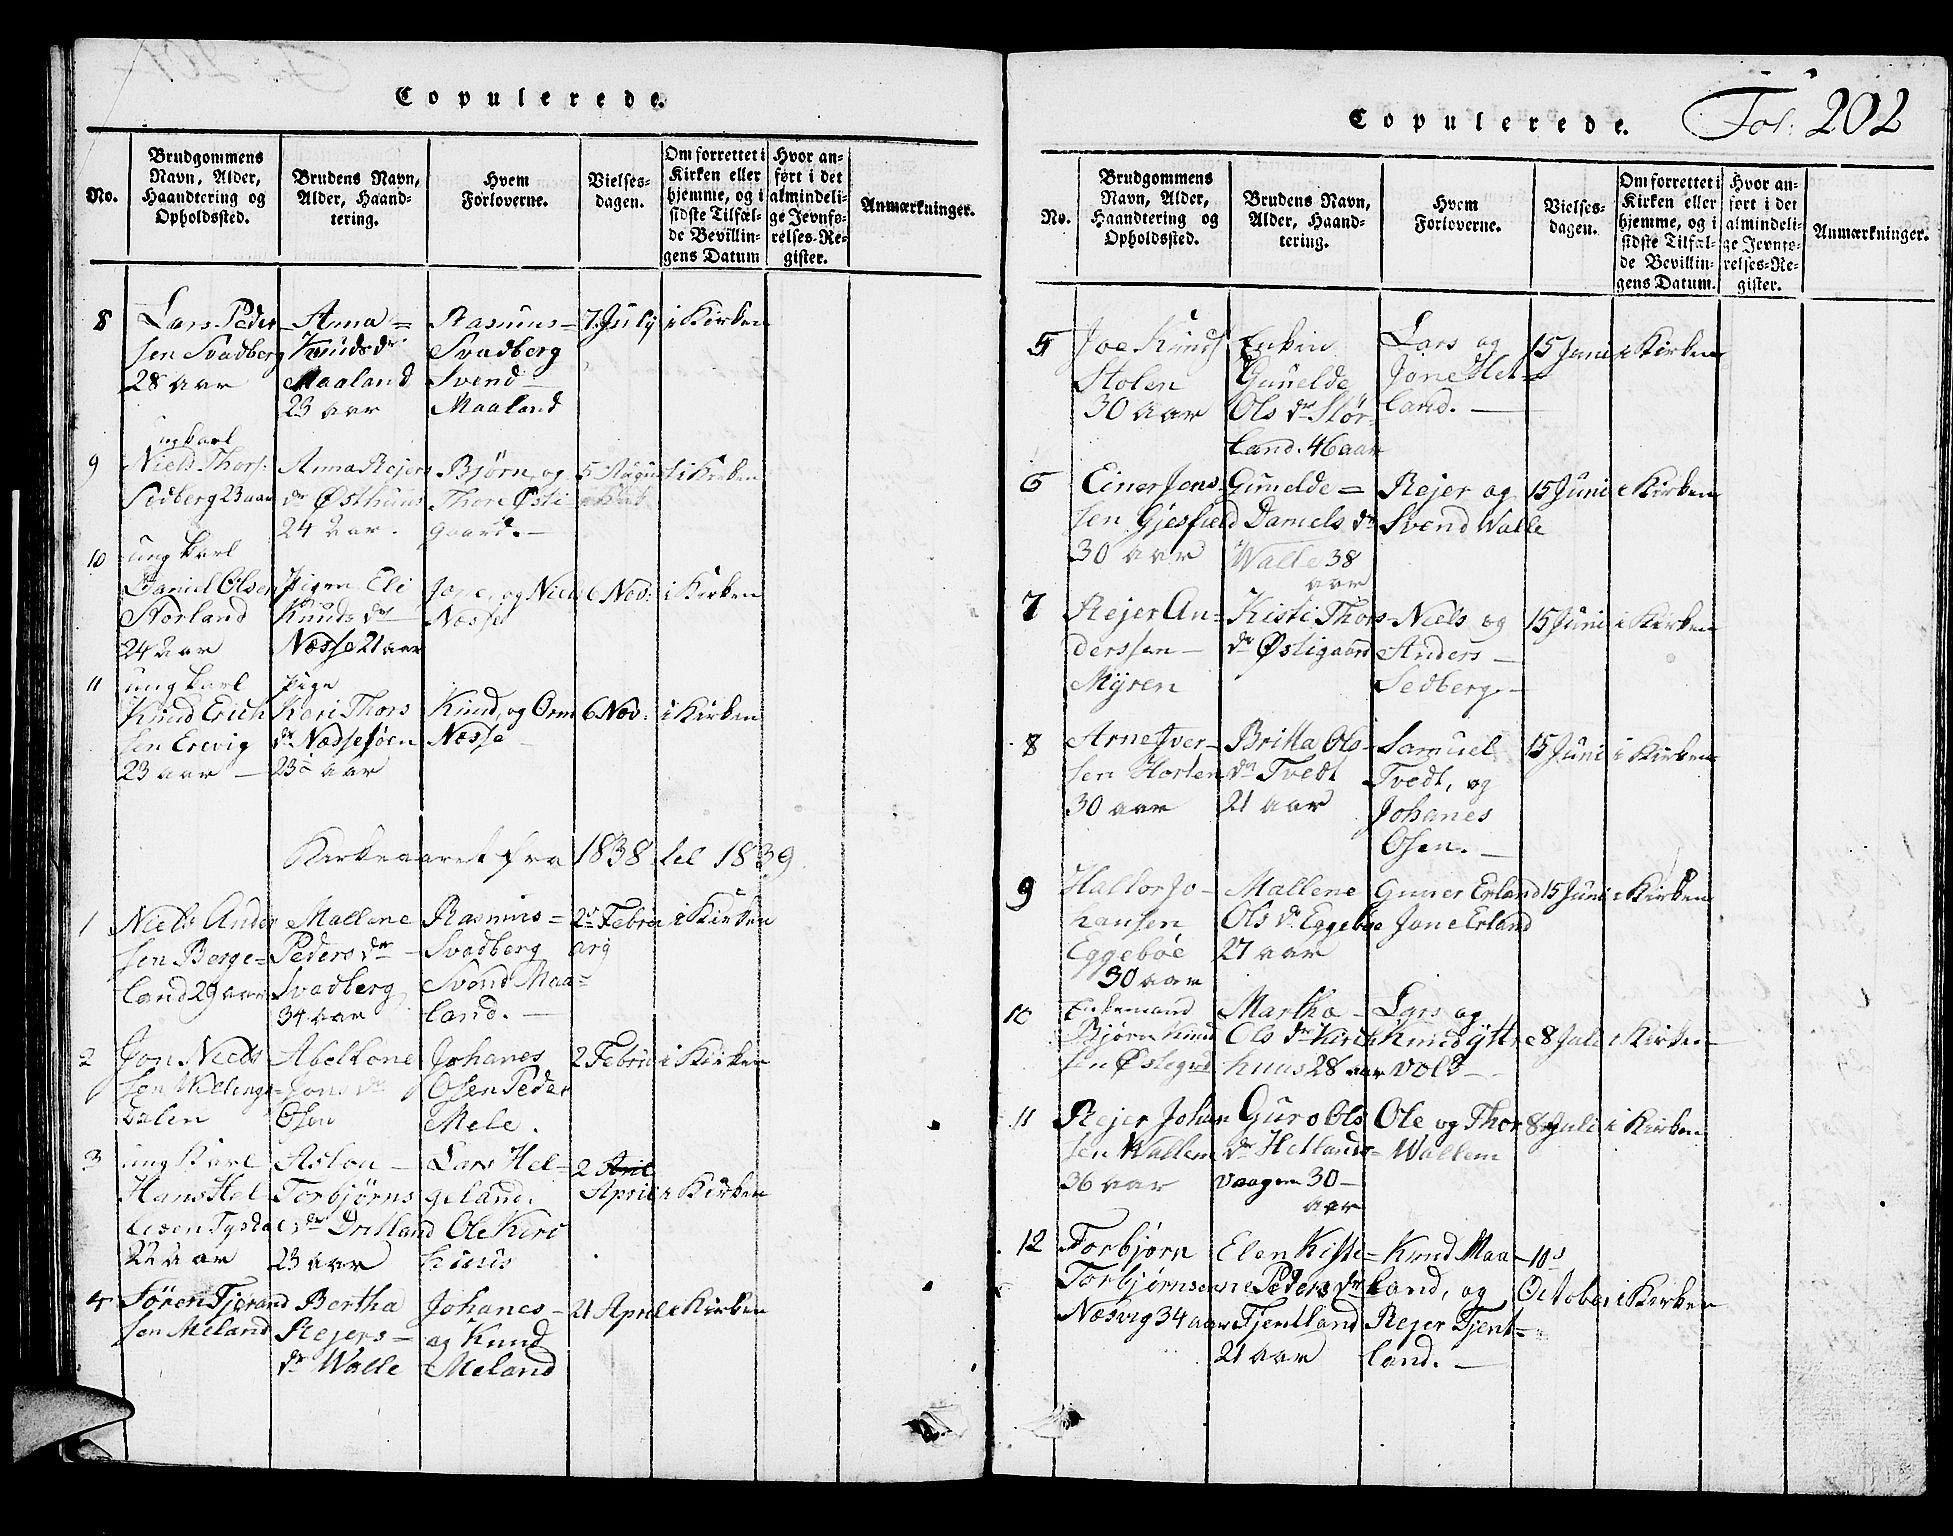 Copulerede.
No.
Brudgommens Navn, Alder, Haandtering og Opholdssted.
Brudens Navn, Alder, Haandtering.
Hvem Forloverne.
Vielses-dagen.
Om forrettet i Kirken eller hjemme, og i sidste Tilfælde Bevillingens Datum
Hvor anført i det almindelige Jevnførelses-Register.
Anmærkninger.
8
Lars Peder
sen Svadberg
28 aar
Anna =
Knuds dr
Maaland
23 aar
Rasmus =
Svadberg
Svend
Maaland
7. July
i Kirken
9
ungkarl
Niels Thors.
Sedberg 23 aar
Anna Rejers
dr Østhuus
24 aar.
Bjørn og
Thore Østi-
gaard.
5 August
i Kirken
10
ungkarl
Daniel Olsen
Storland
24 aar
Pigen Eli
Knuds dr
Næsse 21 aar
Jone og Niels
Næsse
6 Nov:
i Kirken
11
ungkarl
Knud Erich
sen Erevig
23 aar
Pige
Kari Thors
dr Næssesøen
23 aar
Knud, og Orm
Næsse
6 Nov:
i Kirken
Kirkeaaret fra 1838 til 1839
1
Niels Ander
sen Berge=
land 29 aar
Mallene
Peders dr
Svadberg
34 aar
Rasmus =
Svadberg
Svend Maa=
land.
2d Febru
arij
i Kirken
2
Jon Niels
sen Willings
dalen
Abelkone
Jons dr
Osen
Johanes
Osen Peder
Mele.
2 Febru
i Kirken
3
ung Karl
Hans Hel
Tysdal
22 aar
Aslou
Torbjørns
dr
23 aar
Lars Hel-
geland.
Ole Kirc
huus
2
April
i Kirken
4
Søren Tjerand
sen Meland
Bertha
Rejers-
dr Walle
Johanes-
og Knud
Meland
21 April
i Kirken
Copulerede.
Fol: 202
No.
Brudgommens Navn, Alder, Haandtering og Opholdssted.
Brudens Navn, Alder, Haandtering.
Hvem Forloverne.
Vielses-dagen.
Om forrettet i Kirken eller hjemme, og i sidste Tilfælde Bevillingens Datum.
Hvor anført i det almindelige Jevnførelses-Register.
Anmærkninger.
5
Joe Knuds
Stolen
30 aar
Enkin
Gunelde
Ols dr Stør-
land. 46 aar
Lars og
Jone Het-
land.
15 Juni
i Kirken
6
Einer Jens
sen Gjesfield
30 aar
Gunelde =
Daniels dr
Walle 38
aar
Rejer og
Svend Walle
15 Juni
i Kirken
7
Rejer An-
derssen
Myren
Kisti Thors
dr Østigaard
Niels og
Anders
Sedberg.
15 Juni
i Kirken
8
Arne Iver-
sen Horten
30 aar
Britta Ols
dr Tvedt
21 aar
Samuel
Tvedt, og
Johanes
Osen.
15 Juni
i Kirken
9
Hallor Jo-
hansen
Eggebøe
30 aar
Mallene
Ols dr Eggebøe
27 aar
Guner Erland
Jone Erland
15 Juni
i Kirken
10
Enkemand
Bjørn Knud
sen
Martha
Ols dr Kirch
huus 28 aar
Lars og
Knud Yttre
Vold
8 Juli
i Kirken
11
Rejer Johan
sen Wallem
36 aar
Guro Ols
dr Hetlands-
vaagen 30
aar
Ole og Thor
Wallem
8 Juli
i Kirken
12
Torbjørn
Torbjørnsen
Næsvig 34 aar
Elen Kisti-
ne Peders dr
Tjentland
21 aar
Knud Maa-
land, og
Rejer Tjent-
land.
10s
October
i Kirken